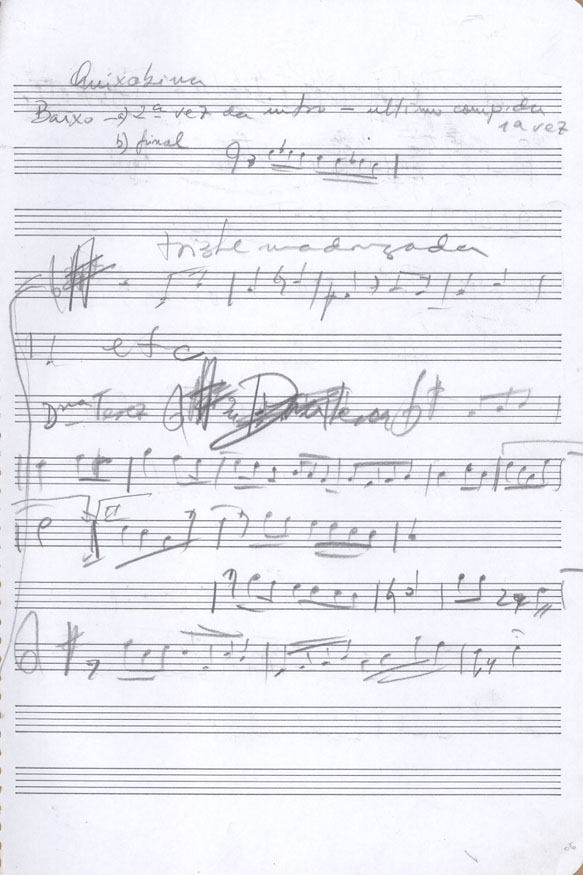 Quixabinha
Baixo – a) 2ª vez da intro – ultimo compida
1ª vez
b) final
triste madrugada
etc
Dna Tereza